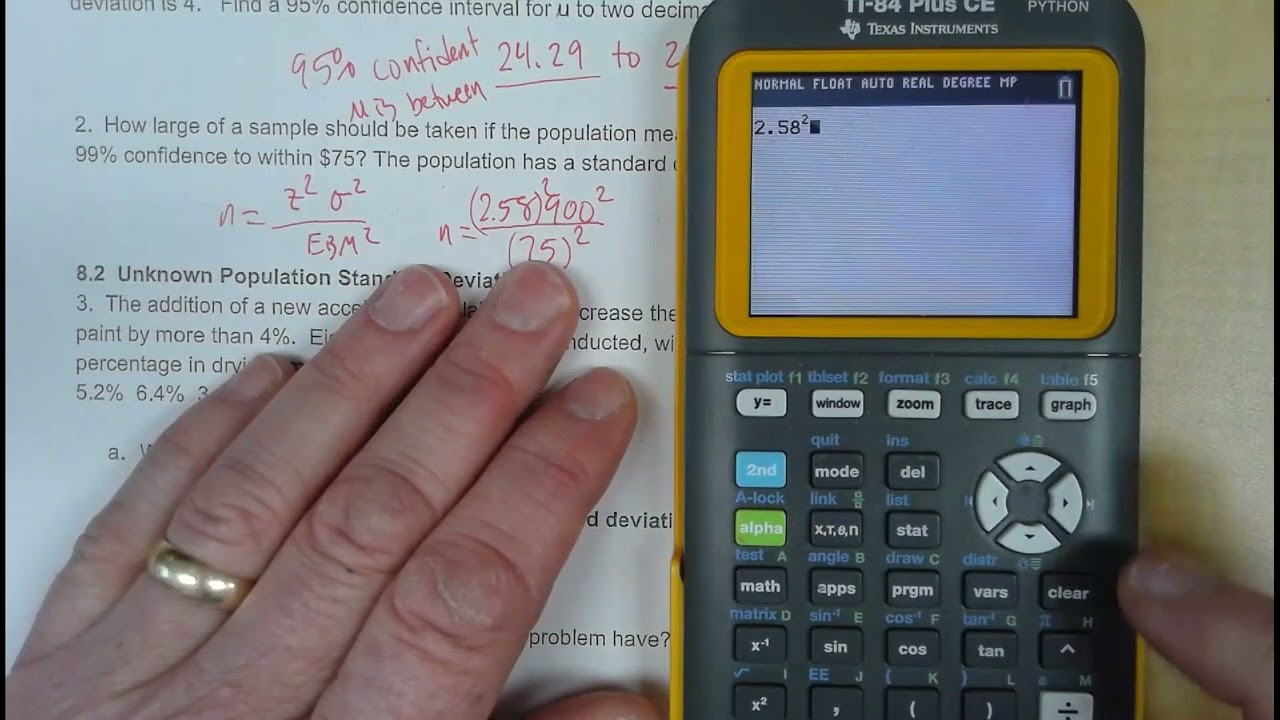 deviation is 4. Find a 95% confidence interval for μ to two decima
95% confident 24.29 to 2
μ is between
2. How large of a sample should be taken if the population mea
99% confidence to within $75? The population has a standard
n = z² σ² / EBM² n = (2.58)² 900² / (75)²
8.2 Unknown Population Stan Deviat
3. The addition of a new acce crease the
paint by more than 4%. Ei nducted, wi
percentage in dryi
5.2% 6.4% 3
a. W
d deviati
problem have?
TI-84 Plus CE PYTHON
TEXAS INSTRUMENTS
NORMAL FLOAT AUTO REAL DEGREE MP
2.58²
stat plot f1 tblset f2 format f3 calc f4 table f5
y= window zoom trace graph
quit ins
2nd mode del
A-lock link list
alpha X,T,θ,n stat
test A angle B draw C distr
math apps prgm vars clear
matrix D sin⁻¹ E cos⁻¹ F tan⁻¹ G π H
x⁻¹ sin cos tan ^
√ I EE J { K } L e M
x² , ( ) ÷